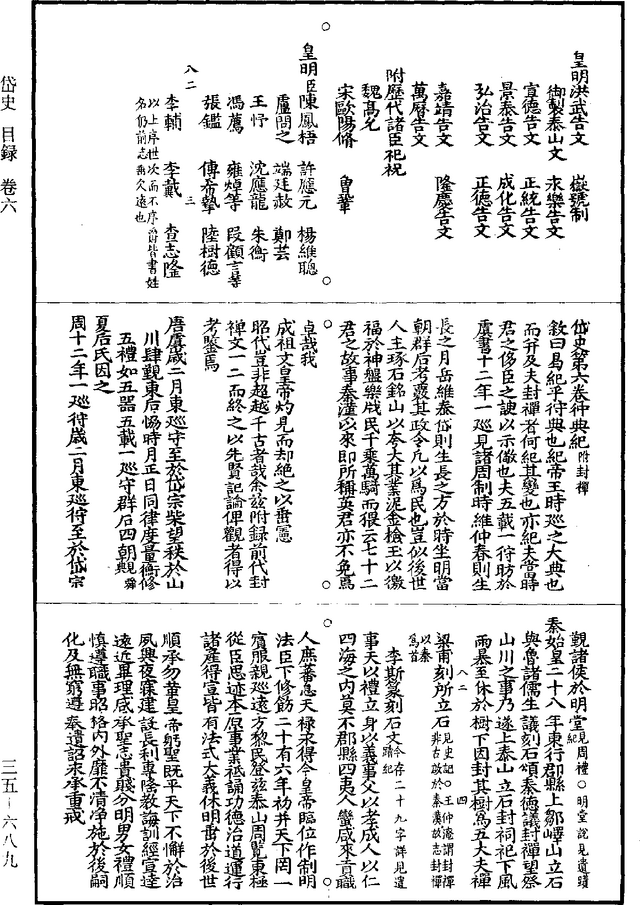 皇明洪武告文　嶽號制
御製泰山文　永樂告文
宣德告文　正統告文
景泰告文　成化告文
弘治告文　正德告文
嘉靖告文　隆慶告文
萬曆告文
附歷代諸臣祀祝
魏高允
宋歐陽脩　曾鞏
皇明臣陳鳳梧　許應元　楊維聰
盧問之　端廷赦　鄭芸
王忬　沈應龍　朱衡
馮薦　雍焯等　段顧言等
張鑑　傅希摯　陸樹德
八二　三
李輔　李戴　查志隆
以上序世次而不序爵皆書姓
名仍前志垂久遠也
岱史第六卷狩典紀附封禪
敘曰曷紀乎狩典也紀帝王時巡之大典也
而并及夫封禪者何紀其變也亦紀夫當時
君之侈臣之諛以示儆也夫五載一狩昉於
虞書十二年一巡見諸周制時維仲春則生
長之月岳維泰岱則生長之方於時坐明當
朝群后考覈其政令凡以爲民也豈似後世
人主琢石銘山以夸大其業泥金檢玉以徼
福於神盤樂戲民千乘萬騎而猥云七十二
君之故事秦漢以來即所稱英君亦不免焉
卓哉我
成祖文皇帝灼見而却絕之以垂憲
昭代豈非超越千古者哉余玆附録前代封
禪文一二而終之以先賢記論俾觀者得以
考鑒焉
唐虞歲二月東巡守至於岱宗柴望秩於山
川肆覲東后恊時月正日同律度量衡修
五禮如五器五載一巡守群后四朝觀舜
夏后氏因之
周十二年一巡狩歲二月東巡狩至於岱宗
覲諸侯於明堂見周禮○明堂說見遺蹟紀
秦始皇二十八年東行郡縣上鄒嶧山立石
與魯諸儒生議刻石頌秦德議封禪望祭
山川之事乃遂上泰山立石封祠祀下風
雨暴至休於樹下因封其樹爲五大夫禪
八二　四
梁甫刻所立石見史記○王仲淹謂封禪非古啟於秦漢故志封禪以秦爲首
李斯篆刻石文今存二十九字詳見遺蹟紀
事天以禮立身以義事父以孝成人以仁
四海之內莫不郡縣四夷八蠻咸來貢職
人庶蕃息天祿永得今皇帝臨位作制明
法臣下修飭二十有六年初并天下罔一
賓服親巡遠方黎民登玆泰山周覽東極
從臣思迹本原事業祗誦功德治道運行
諸産得宜皆有法式大義休明垂於後世
順承勿革皇帝躬聖既平天下不懈於治
夙興夜寐建設長利專隆教誨訓經宣達
遠近畢理咸承聖志貴賤分明男女禮順
慎遵職事昭格內外靡不清淨施於後嗣
化及無窮遵奉遺詔永承重戒
岱史　目録　卷六
三五－六八九